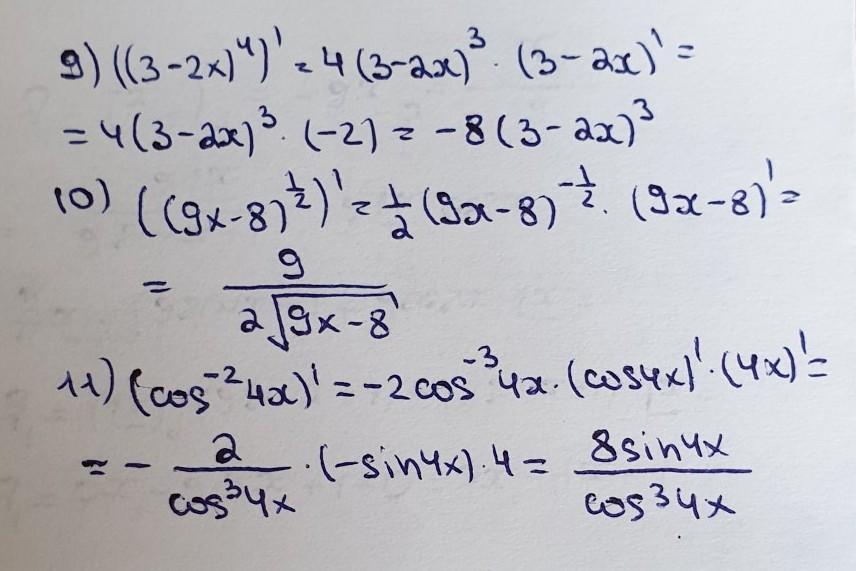 9) ((3-2x)⁴)' = 4(3-2x)³ · (3-2x)' =
= 4(3-2x)³ · (-2) = -8(3-2x)³
10) ((9x-8)^{1/2})' = 1/2 (9x-8)^{-1/2} · (9x-8)' =
= 9/(2√(9x-8))
11) (cos⁻²4x)' = -2cos⁻³4x · (cos4x)' · (4x)' =
= - 2/(cos³4x) · (-sin4x) · 4 = 8sin4x/(cos³4x)